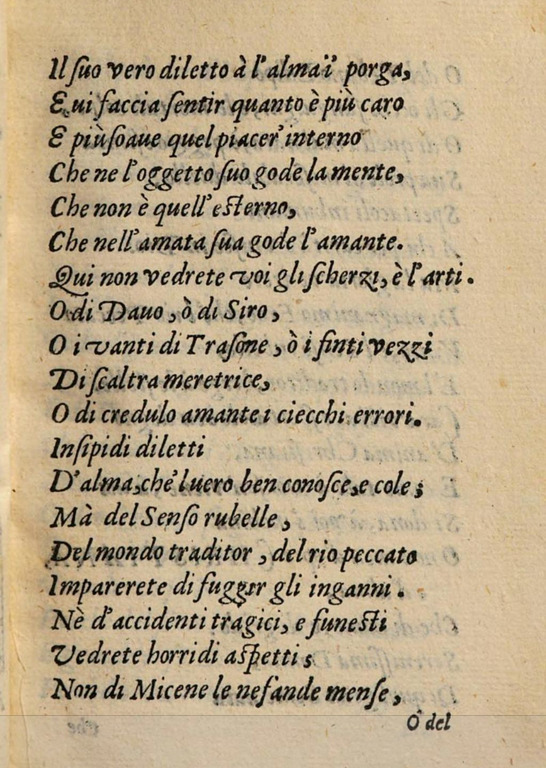 Il ſuo vero diletto à l'alma i' porga,
E vi faccia ſentir quanto è più caro
E più ſoaue quel piacer' interno
Che ne l'oggetto ſuo gode la mente,
Che non è quell' eſterno,
Che nell'amata ſua gode l'amante.
Qui non vedrete voi gli ſcherzi, è l'arti.
O di Dauo, ò di Siro,
O i vanti di Traſone, ò i finti vezzi
Di ſcaltra meretrice,
O di credulo amante i ciecchi errori.
Inſipidi diletti
D'alma, che'l uero ben conoſce, e cole;
Mà del Senſo rubelle,
Del mondo traditor, del rio peccato
Imparerete di fuggir gli inganni.
Nè d'accidenti tragici, e funeſti
Vedrete horridi aſpetti;
Non di Micene le nefande menſe,
O del